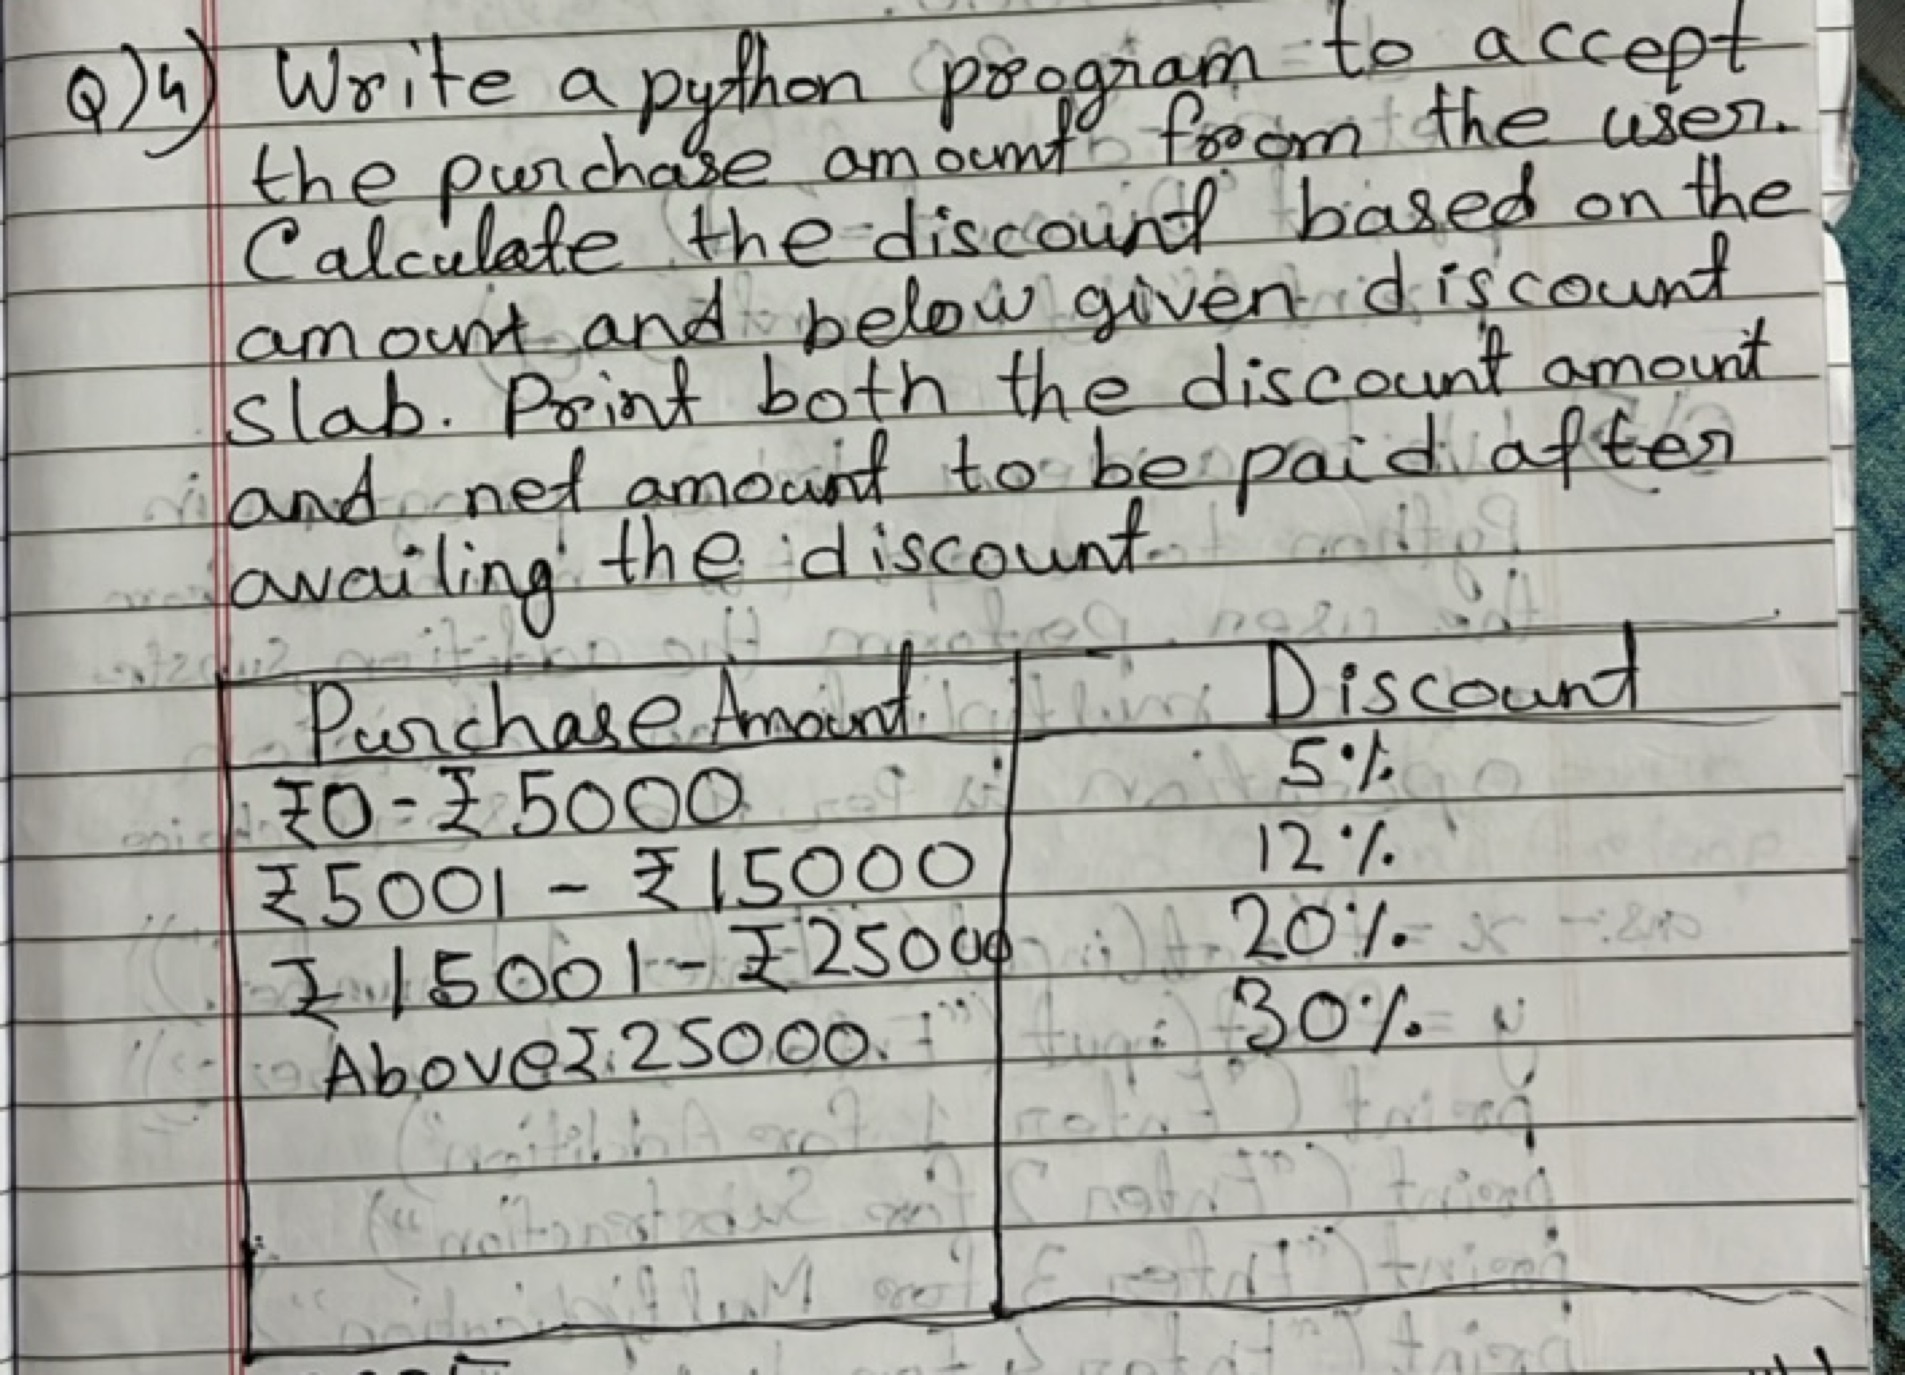 Q)4) Write a python program to accept
the purchase amount from the user.
Calculate the discount based on the
amount and below given discount
slab. Print both the discount amount
and net amount to be paid after
availing the discount.
Purchase Amount. Discount
₹0 - ₹5000 5%
₹5001 - ₹15000 12%
₹15001 - ₹25000 20%
Above ₹25000. 30%